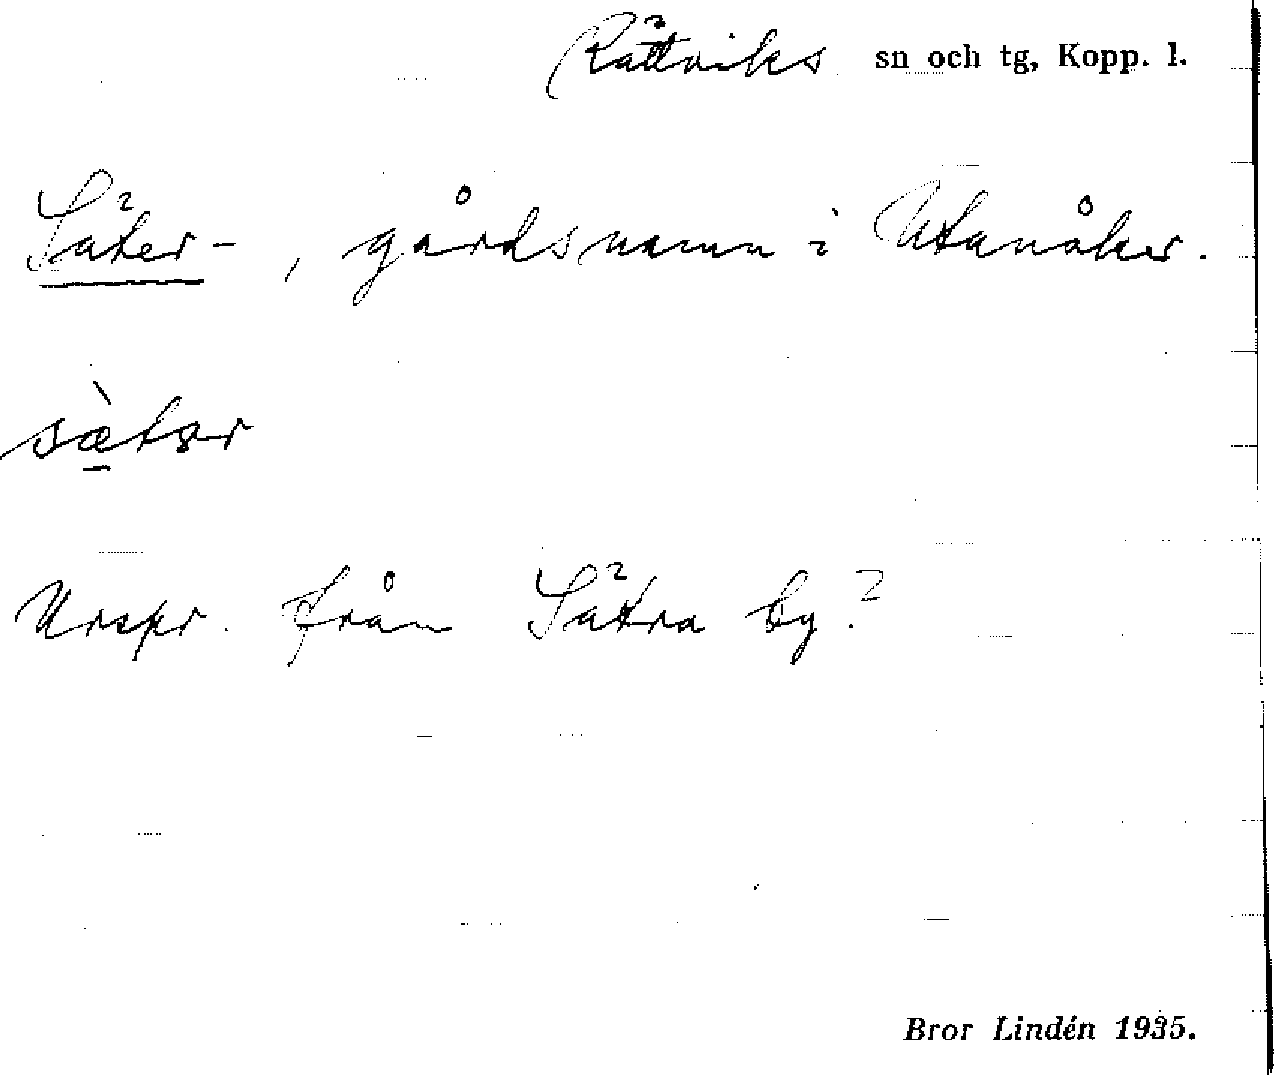 Rättviks sn och tg, Kopp. l.
Säter-, gårdsnamn i Utanåker.
sæ̠̀tər
Urspr. från Sätra by?
Bror Lindén 1935.